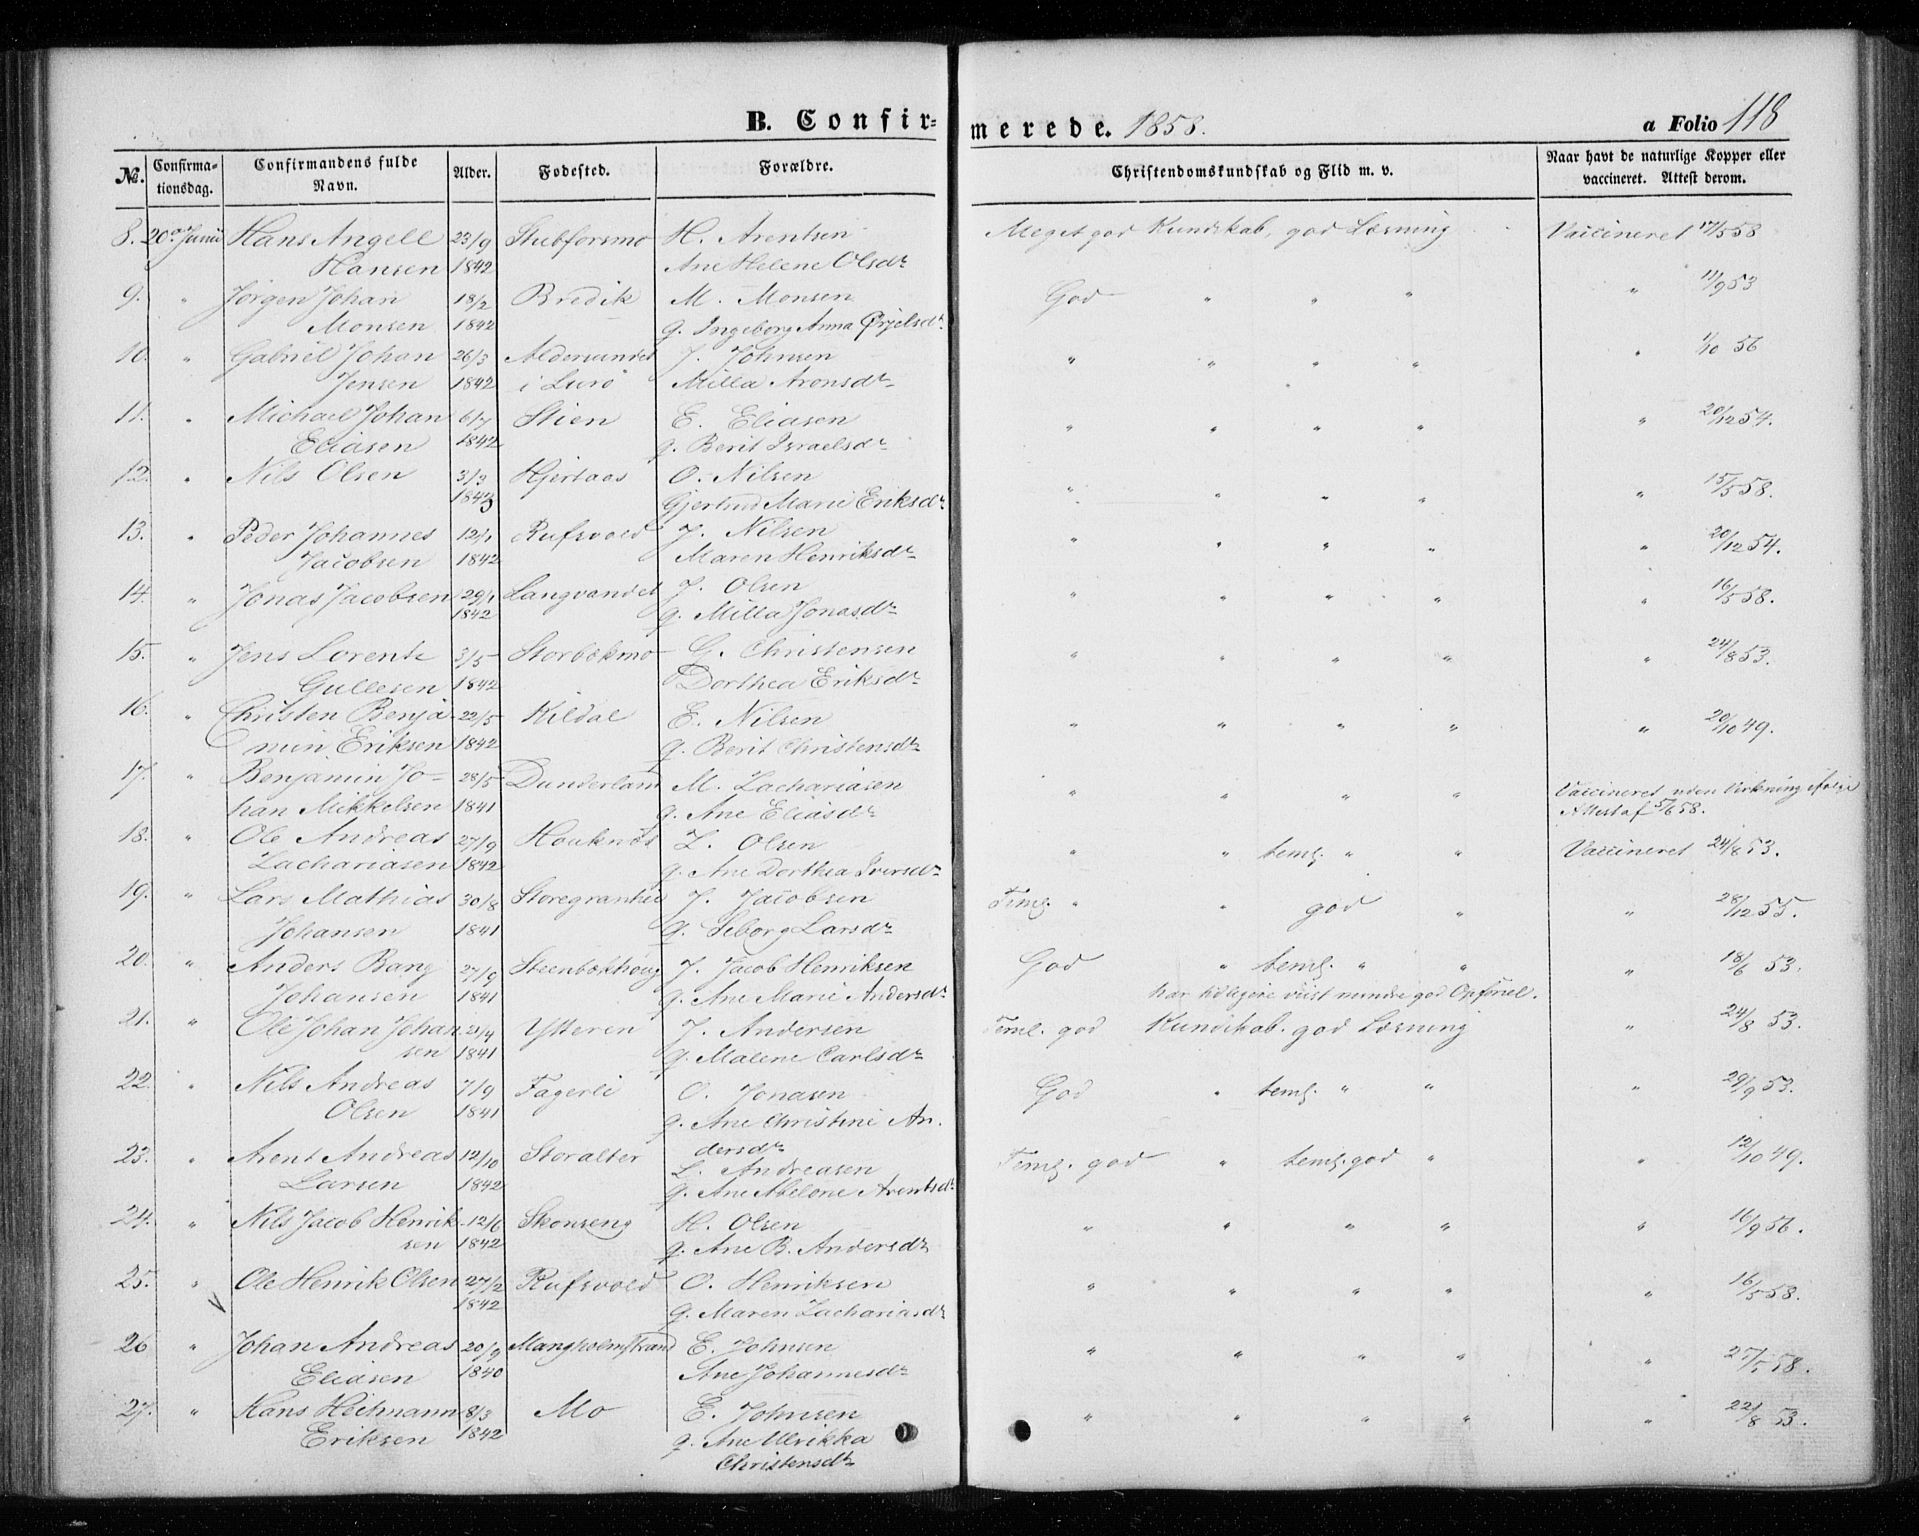 B. Confirmerede. 1858. a Folio 118
No. Confirmationsdag. Confirmandens fulde Navn. Alder. Fødested. Forældre. Christendomskundskab og Flid m. v. Naar havt de naturlige Kopper eller vaccineret. Attest derom.
8. 20de Junii Hans Angell 23/9 Stubforsmo H. Arentsen Meget god Kundskab, god Læsning Vaccineret 17/5 58
Hansen 1842 Ane Helene Olsdr
9. " Jørgen Johan 18/2 Bredik M. Monsen God " " " " 11/9 53
Monsen 1842 g. Ingeborg Anna
10. " Gabriel Johan 26/3 Aldersundet J. Johnsen " " " " " 1/10 56
Jensen 1842 i Lurö Milla Aronsdr
11. " Michael Johan 6/7 Stien E. Eliasen " " " " " 20/12 54.
Eliasen 1842 g. Berit Israelsdr
12. " Nils Olsen 3/3 Hjertaas O. Nilsen " " " " " 15/5 58.
1843 Gjertrud Marie Eriksdr
13. " Peder Johannes 12/1 Rufsvold J. Nilsen " " " " " 20/12 54.
Jacobsen 1842 Maren Henriksdr
14. " Jonas Jacobsen 29/1 Langvandet J. Olsen " " " " " 16/5 58.
1842 g. Milla Jonasdr
15. " Jens Lorents 3/5 Storbækmo G. Christensen " " " " " 24/8 53.
Gullesen 1842 Dorthea Eriksdr
16. " Christen Benja- 22/5 Kildal E. Nilsen " " " " " 20/10 49.
min Eriksen 1842 g. Berit Christensdr
17. " Benjamin Jo- 28/5 Dunderland M. Zachariasen " " " " Vaccineret uden Virkning ifølge
han Mikkelsen 1841 g. Ane Eliasdr Attest af 5/6 58.
18. " Ole Andreas 27/9 Houknæs Z. Olsen " " teml. " " Vaccineret 24/8 53.
Zachariasen 1842 g. Ane Dorthea Iversdr
19. " Lars Mathias 30/8 Storegranhei J. Jacobsen Teml. " " god " " 28/12 55.
Johansen 1841 g. Seborg Larsdr
20. " Anders Bang 27/9 Steenbækhoug J. Jacob Henriksen God " teml. " " " 18/6 53.
Johansen 1841 g. Ane Marie Andersdr har tidligere viist mindre god Opførsel.
21. " Ole Johan Johan 21/4 Ytteren J. Andersen Teml. god Kundskab. god Læsning " 24/8 53.
sen 1841 g. Malene Carlsdr
22. " Nils Andreas 7/9 Fagerli O. Jonasen God " teml. " " " 29/9 53.
Olsen 1841 g. Ane Christine An-
dersdr
23. " Arent Andreas 12/10 Storalter L. Andreasen Teml. god " teml. god " " 12/10 49.
Larsen 1842 g. Ane Abelone Arentsdr
24. " Nils Jacob Henrik- 12/6 Skonseng H. Olsen " " " " " 16/9 56.
sen 1842 g. Ane B. Andersdr
25. " Ole Henrik Olsen 27/2 Rufsvold O. Henriksen " " " " " 16/5 58.
1842 g. Maren Zachariasdr
26 " Johan Andreas 20/9 Mangholmstrand E. Johnsen " " " " " 25/5 58.
Eliasen 1840 Ane Johannesdr
27. " Hans Heitmann 8/3 Mo E. Johnsen " " " " " 22/8 53.
Eriksen 1842 g. Ane Ulrikka
Christensdr